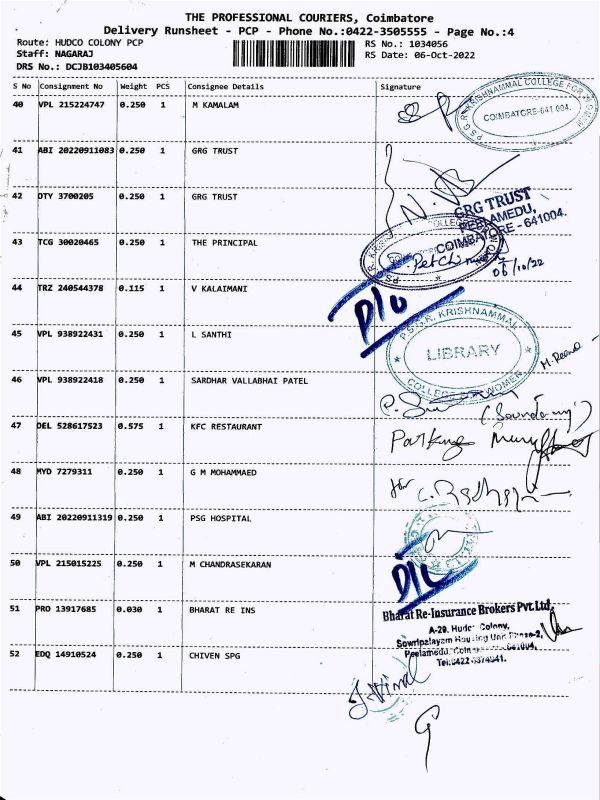 THE PROFESSIONAL COURIERS, Coimbatore
Delivery Runsheet - PCP - Phone No.:0422-3505555 - Page No.:4
Route: HUDCO COLONY PCP
RS No.: 1034056
Staff: NAGARAJ
RS Date: 06-Oct-2022
DRS No.: DCJB103405604
S No Consignment No Weight PCS Consignee Details Signature
40 VPL 215224747 0.250 1 M KAMALAM
P.S.G.R. KRISHNAMMAL COLLEGE FOR WOMEN
COIMBATORE-641 004.
41 ABI 20220911083 0.250 1 GRG TRUST
42 DTY 3700205 0.250 1 GRG TRUST
GRG TRUST
PEELAMEDU,
COIMBATORE - 641004.
43 TCG 30020465 0.250 1 THE PRINCIPAL
06/10/22
44 TRZ 240544378 0.115 1 V KALAIMANI
D/L
45 VPL 938922431 0.250 1 L SANTHI
P.S.G.R. KRISHNAMMAL
LIBRARY
COLLEGE FOR WOMEN
46 VPL 938922418 0.250 1 SARDHAR VALLABHAI PATEL
47 DEL 528617523 0.575 1 KFC RESTAURANT
48 MYD 7279311 0.250 1 G M MOHAMMED
49 ABI 20220911319 0.250 1 PSG HOSPITAL
50 VPL 215015225 0.250 1 M CHANDRASEKARAN
D/L
51 PRO 13917685 0.030 1 BHARAT RE INS
Bharat Re-Insurance Brokers Pvt.Ltd.
A-29, Hudco Colony,
Sowripalayam Housing Unit
Peelamedu,
52 EDQ 14910524 0.250 1 CHIVEN SPG